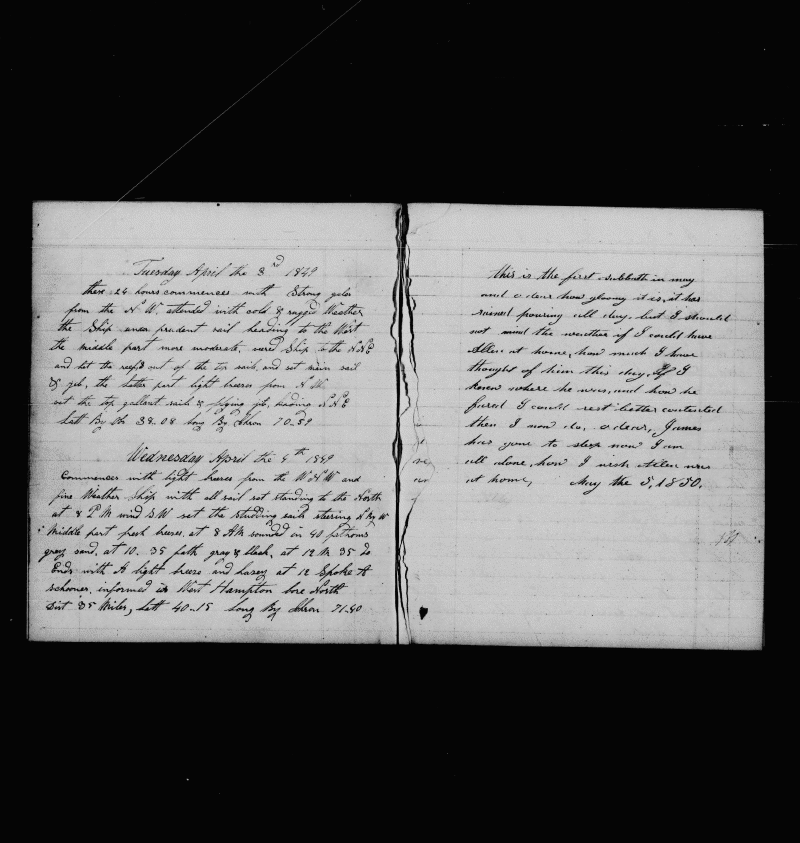 Tuesday April the 3rd 1849
these 24 hours commences with Strong gales
from the N.W. attended with cold & ragged Weather
the Ship under prudent sail heading to the West
the middle part more moderate, wared Ship to the N.N.E
and let the reefs out of the top sails and set main sail
& jib, the latter part light breezes from N W
set the top gallant sails & flying jib, heading N.N.E
Latt By Ob 38.08 long By Chron 70.59
Wednesday April the 4th 1849
Commences with light breezes from the W.N.W and
fine Weather Ship with all sail set standing to the North
at 8 P.M wind S.W set the studding sails steering N By W
Middle part fresh breezes, at 8 AM sounded in 40 fathoms
gray sand, at 10. 35 fath gray & black, at 12 M 35 Do
Ends with A light breeze and hasey at 12 Spoke A
schooner informed us West Hampton bore North
Dist 35 Miles, Latt 40.15 long By Chron 71.40
this is the first sabbath in may
and o dear how gloomy it is, it has
rained pouring all day, but I should
not mind the weather if I could have
Allen at home, how much I have
thought of him this day, If I
knew where he was, and how he
fared I could rest better contented
then I now do, o dear, James
has gone to sleep now I am
all alone, how I wish Allen was
at home, May the 5, 1850.